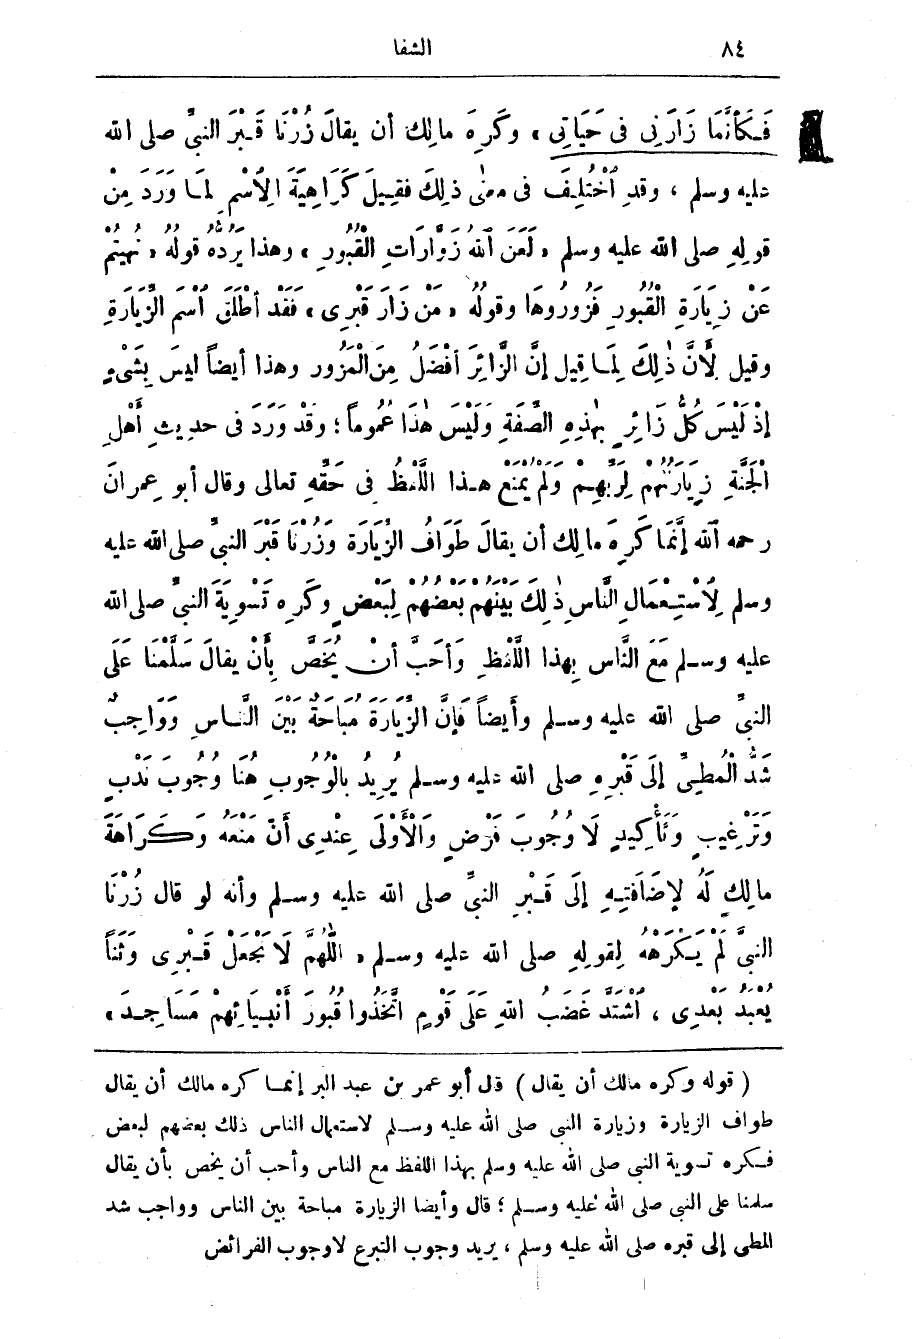 ٨٤ الشفا
فَكَأَنَّمَا زَارَنِى فى حَيَاتِى » وكَرِهَ مالِكٌ أن يقالَ زُرْنَا قَبْرَ النبيِّ صلى الله
عليه وسلم ، وقدِ اُخْتُلِفَ فى معنَى ذلِكَ فقِيلَ كَرَاهِيَةَ الِاسْمِ لِمَا وَرَدَ مِنْ
قولِهِ صلى الله عليه وسلم « لَعَنَ اللهُ زَوَّارَاتِ الْقُبُورِ » وهذا يَرُدُّهُ قولُهُ « نُهِيتُمْ
عَنْ زِيَارَةِ الْقُبُورِ فَزُورُوهَا وقولُهُ « مَنْ زَارَ قَبْرِى » فَقَدْ أطْلَقَ اسْمَ الزِّيَارَةِ
وقيل لِأَنَّ ذٰلِكَ لِمَا قِيل إنَّ الزَّائِرَ أفْضَلُ مِنَ الْمَزُورِ وهذا أيضاً ليسَ بِشَىْءٍ
إذْ لَيْسَ كُلُّ زَائِرٍ بِهٰذِهِ الصِّفَةِ وَلَيْسَ هٰذَا عُمُوماً ؛ وقَدْ وَرَدَ فى حديثِ أَهْلِ
الْجَنَّةِ زِيَارَتُهُمْ لِرَبِّهِمْ وَلَمْ يُمْنَعْ هذا اللَّفْظُ فى حَقِّهِ تعالى وقال أبو عِمرانَ
رحمه الله إنَّمَا كَرِهَ مالِك أن يقالَ طَوَافُ الزِّيَارَةِ وَزُرْنَا قَبْرَ النبيِّ صلى الله عليه
وسلم لِاسْتِعْمَالِ النَّاسِ ذٰلِكَ بَيْنَهُمْ بَعْضُهُمْ لِبَعْضٍ وكَرِه تَسْوِيَةَ النبيِّ صلى الله
عليه وسلم مَعَ النَّاس بِهذا اللَّفْظِ وَأَحَبَّ أنْ يُخَصَّ بِأَنْ يقالَ سَلَّمْنَا عَلَى
النبيِّ صلى الله عليه وسلم وأَيضاً فَإِنَّ الزِّيَارَةَ مُبَاحَةٌ بَيْنَ النَّاسِ وَوَاجِبٌ
شَدُّ الْمَطِيِّ إلَى قَبْرِهِ صلى الله عليه وسلم يُرِيدُ بالْوُجُوبِ هُنَا وُجُوبَ نَدْبٍ
وَتَرْغِيبٍ وَتَأْكِيدٍ لَا وُجُوبَ فَرْضٍ وَالْأَوْلَى عِنْدِى أَنَّ مَنْعَهُ وَكَرَاهَةَ
مالِكٍ لَهُ لِإضَافَتِهِ إلَى قَبْرِ النبيِّ صلى الله عليه وسلم وأنه لو قال زُرْنَا
النبيَّ لَمْ يَكْرَهْهُ لِقولِهِ صلى الله عليه وسلم « اللّٰهُمَّ لَا تَجْعَلْ قَبْرِى وَثَناً
يُعْبَدُ بَعْدِى ، اُشْتَدَّ غَضَبُ اللهِ عَلَى قَوْمٍ اتَّخَذُوا قُبُورَ أَنْبِيَائِهِمْ مَسَاجِدَ »
( قوله وكره مالك أن يقال ) قال أبو عمر بن عبد البر إنما كره مالك أن يقال
طواف الزيارة وزيارة النبى صلى الله عليه وسلم لاستعمال الناس ذلك بعضهم لبعض
فكره تسوية النبى صلى الله عليه وسلم بهذا اللفظ مع الناس وأحب أن يخص بأن يقال
سلمنا على النبى صلى الله عليه وسلم ؛ قال وأيضا الزيارة مباحة بين الناس وواجب شد
المطى إلى قبره صلى الله عليه وسلم ، يريد وجوب التبرع لا وجوب الفرائض